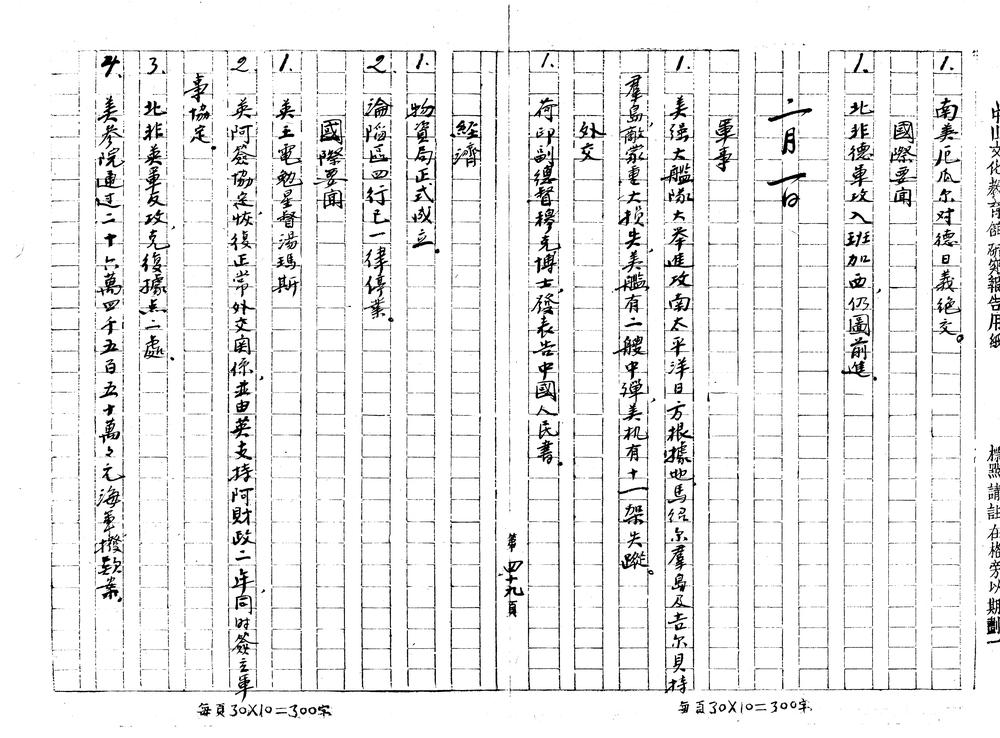 中山文化教育館研究報告用紙　標點請註在格旁以期劃一
1. 南美厄瓜尔对德日義絕交。
國際要聞
1. 北非德軍攻入班加西，仍圖前進。
二月一日
軍事
1. 美强大艦隊大举進攻南太平洋日方根據地馬紹尔羣島及吉尔貝特
羣島，敵蒙重大損失，美艦有二艘中彈，美机有十一架失蹤。
外交
1. 荷印副總督穆克博士，發表告中國人民書。
第四十九頁
經濟
1. 物資局正式成立。
2. 淪陷區四行已一律停業。
國際要聞
1. 英王電勉星督湯瑪斯
2. 英阿簽協定，恢復正常外交関係，並由英支持阿財政二年，同时簽立軍
事協定。
3. 北非英軍反攻，克復據点二處。
4. 美參院通过二十六萬四千五百五十萬々元海軍撥款案。
每頁30X10=300字
每頁30X10=300字